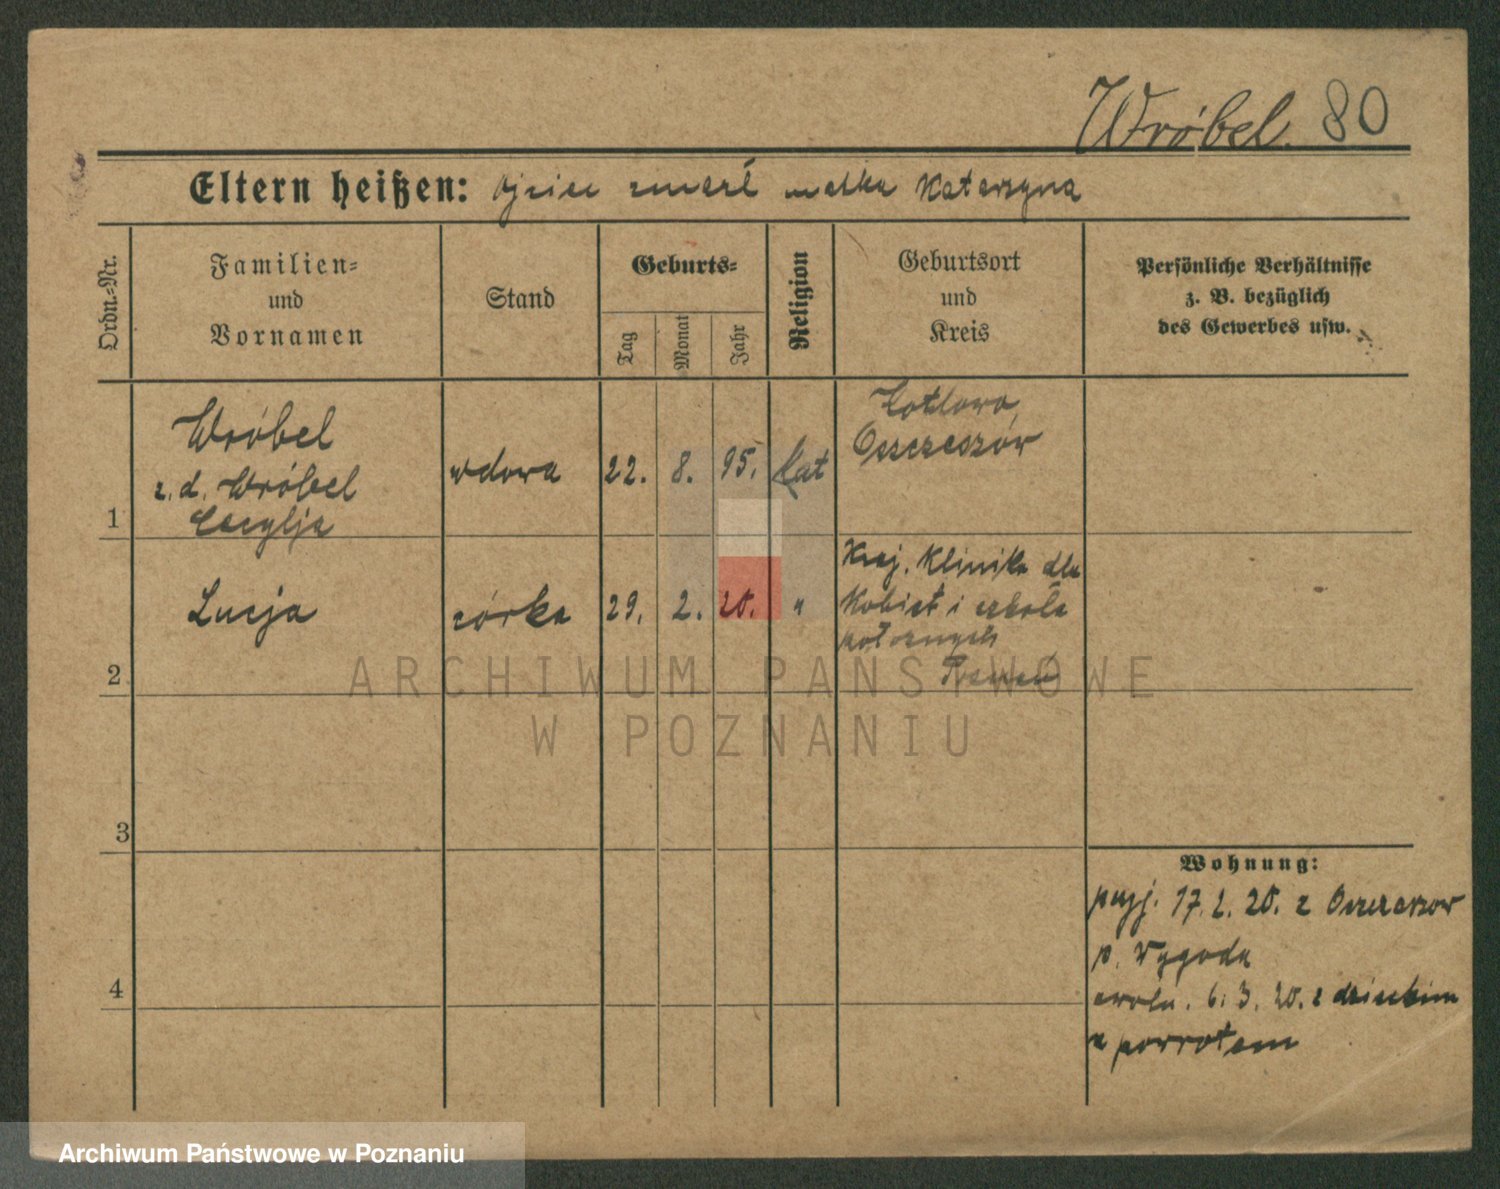 Wróbel. 80
Eltern heißen: Ojciec zmarł matka Katarzyna
Ordn.-Nr.
Familien-
und
Vornamen
Stand
Geburts-
Tag
Monat
Jahr
Religion
Geburtsort
und
Kreis
Persönliche Verhältnisse
z. B. bezüglich
des Gewerbes usw.
1
Wróbel
z. d. Wróbel
Cecylja
wdowa
22. 8. 95.
Kat
Kotłowo
Oszczeszów
2
Lucja
córka
29. 2. 20.
"
Kraj. Klinika dla
Kobiet i szkoła
położnych
Poznań
3
4
Wohnung:
przyj. 17. 2. 20. z Oszczeszów
p. Wygoda
zwoln. 6. 3. 20. z dzieckiem
z powrotem
ARCHIWUM PAŃSTWOWE
W POZNANIU
Archiwum Państwowe w Poznaniu